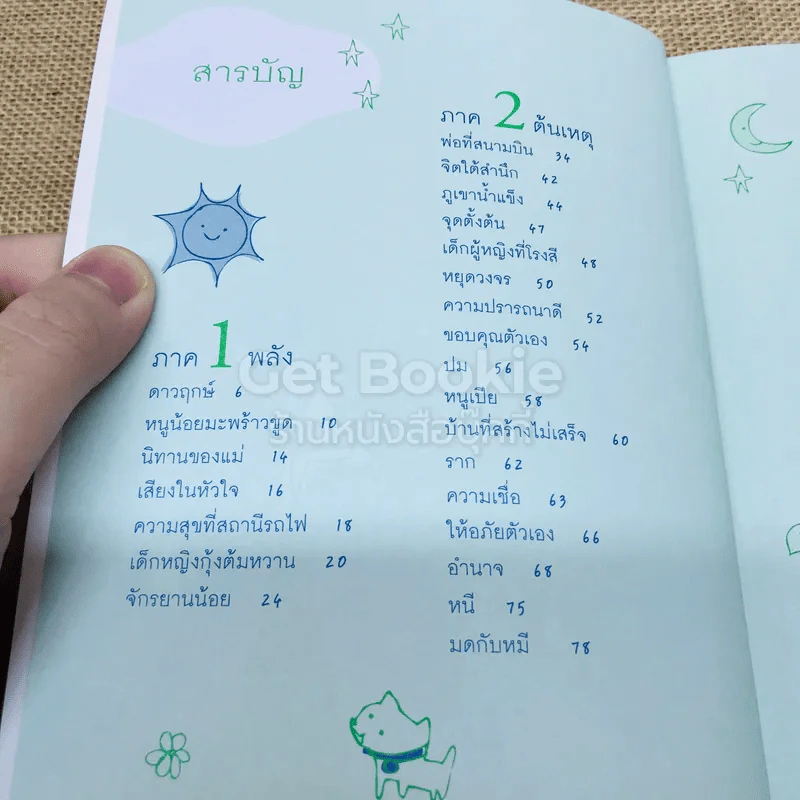 สารบัญ
ภาค 1 พลัง
ดาวฤกษ์ 6
หนูน้อยมะพร้าวขูด 10
นิทานของแม่ 14
เสียงในหัวใจ 16
ความสุขที่สถานีรถไฟ 18
เด็กหญิงกุ้งต้มหวาน 20
จักรยานน้อย 24
ภาค 2 ต้นเหตุ
พ่อที่สนามบิน 34
จิตใต้สำนึก 42
ภูเขาน้ำแข็ง 44
จุดตั้งต้น 47
เด็กผู้หญิงที่โรงสี 48
หยุดวงจร 50
ความปรารถนาดี 52
ขอบคุณตัวเอง 54
ปม 56
หนูเปีย 58
บ้านที่สร้างไม่เสร็จ 60
ราก 62
ความเชื่อ 63
ให้อภัยตัวเอง 66
อำนาจ 68
หนี 75
มดกับหมี 78
Get Bookie
ร้านหนังสือบุ๊กกี้